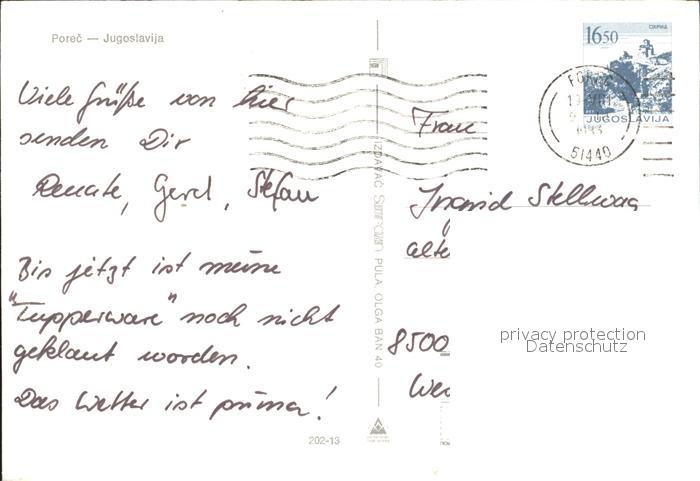 Poreč — Jugoslavija
Viele Grüße von hier
senden Dir
Renate, Gerd, Stefan
Bis jetzt ist meine
"Tupperware" noch nicht
geklaut worden.
Das Wetter ist prima!
202-13
IZDAVAČ PULA, OLGA BAN 40
16.50
JUGOSLAVIJA
51440
Frau
Ingrid Stellwag
alte
8500
privacy protection
Datenschutz